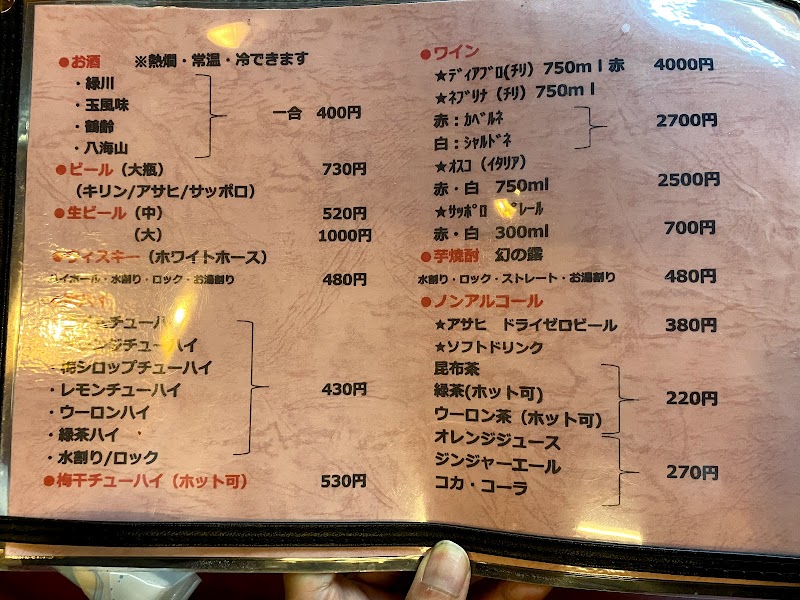 ●お酒 ※熱燗・常温・冷できます
・緑川
・玉風味
・鶴齢
・八海山
一合 400円
●ビール（大瓶） 730円
（キリン/アサヒ/サッポロ）
●生ビール（中） 520円
（大） 1000円
イスキー（ホワイトホース）
ハイボール・水割り・ロック・お湯割り 480円
チューハ
ンジチューハイ
・梅シロップチューハイ
・レモンチューハイ
・ウーロンハイ
・緑茶ハイ
・水割り/ロック
430円
●梅干チューハイ（ホット可） 530円
●ワイン
★ディアブロ(チリ）750ml 赤 4000円
★ネブリナ（チリ）750ml
赤：カベルネ
白：シャルドネ
2700円
★オスコ（イタリア）
赤・白 750ml 2500円
★サッポロ プレール
赤・白 300ml 700円
●芋焼酎 幻の露
水割り・ロック・ストレート・お湯割り 480円
●ノンアルコール
★アサヒ ドライゼロビール 380円
★ソフトドリンク
昆布茶
緑茶(ホット可)
ウーロン茶（ホット可）
220円
オレンジジュース
ジンジャーエール
コカ・コーラ
270円